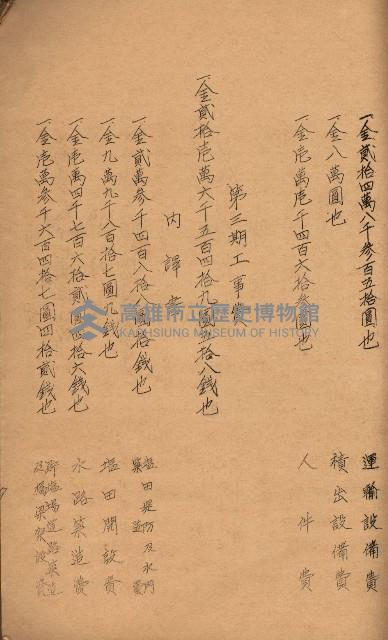 一金貳拾四萬八千參百五拾圓也　運輸設備費
一金八萬圓也　積出設備費
一金壱萬壱千四百六拾參圓也　人件費
第三期工事費
一金貳拾壱萬六千五百四拾九圓五拾八銭也
内譯
一金貳萬參千四百八拾八圓拾銭也　塩田堤防及水門築造費
一金九萬九千八百拾七圓八銭也　塩田開設費
一金壱萬四千七百六拾貳圓四拾六銭也　水路築造費
一金壱萬參千六百四拾七圓四拾貳銭也　塩場道路築造及橋梁架渡費
高雄市立歷史博物館
KAOHSIUNG MUSEUM OF HISTORY